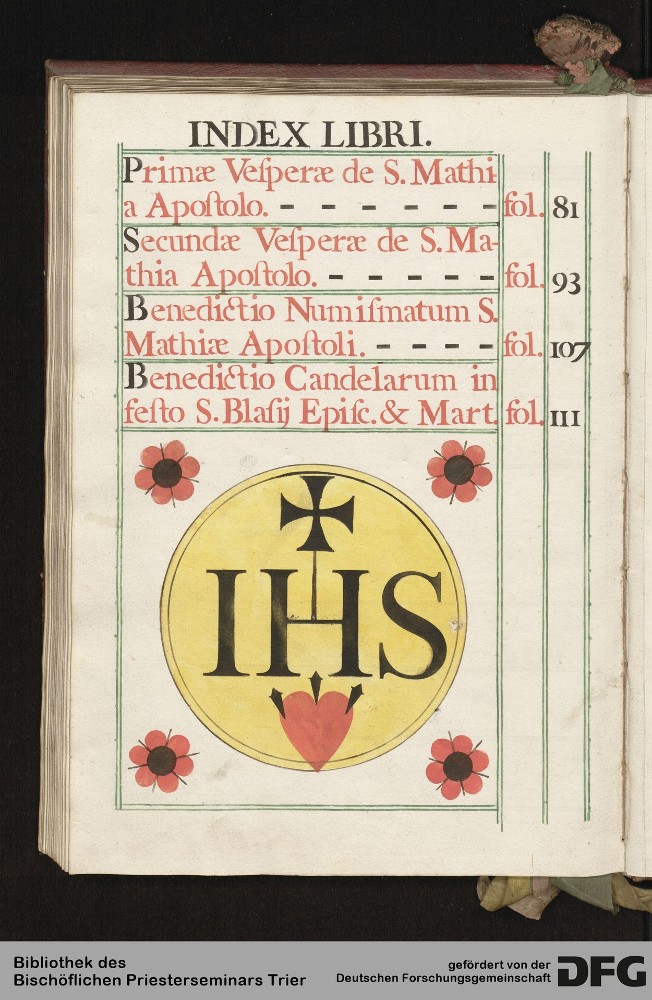 INDEX LIBRI.
Primæ Veſperæ de S. Mathi-
a Apoſtolo. - - - - - - fol. 81
Secundæ Veſperæ de S. Ma-
thia Apoſtolo. - - - - - fol. 93
Benedictio Numiſmatum S.
Mathiæ Apoſtoli. - - - - fol. 107
Benedictio Candelarum in
feſto S. Blaſij Epiſc. & Mart. fol. 111
IHS
Bibliothek des
Bischöflichen Priesterseminars Trier
gefördert von der
Deutschen Forschungsgemeinschaft
DFG